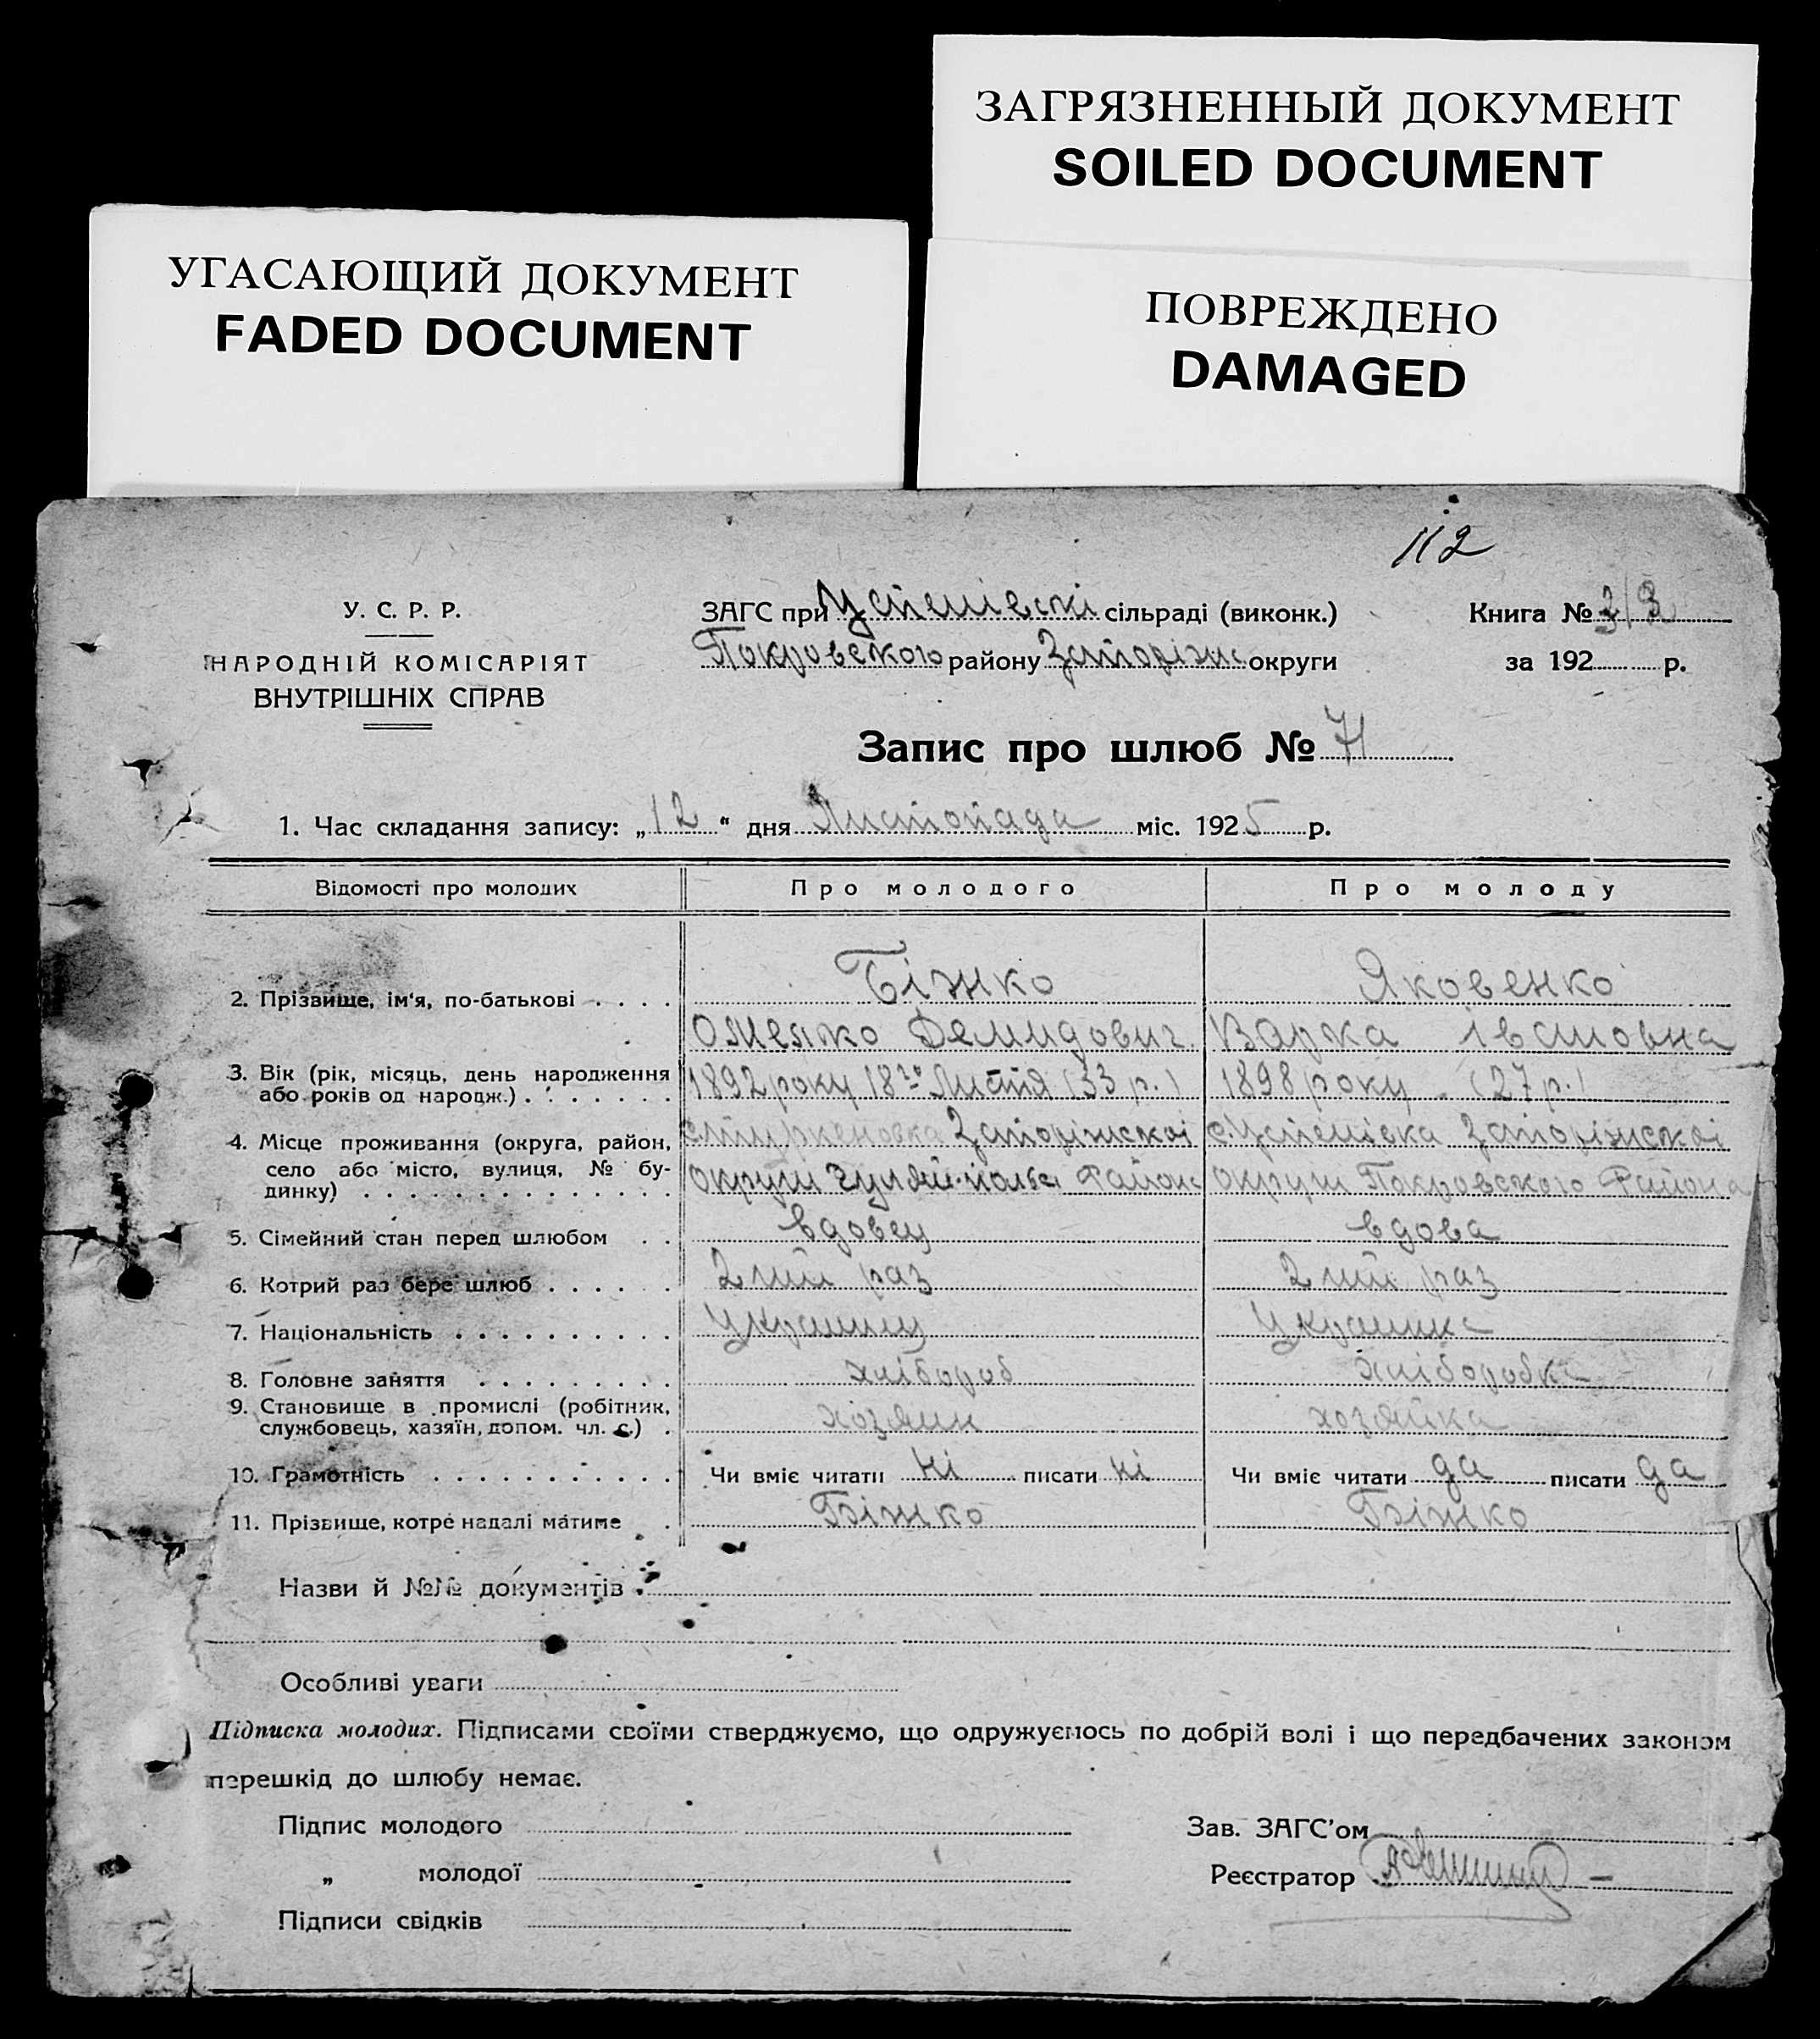 ЗАГРЯЗНЕННЫЙ ДОКУМЕНТ
SOILED DOCUMENT
УГАСАЮЩИЙ ДОКУМЕНТ
FADED DOCUMENT
ПОВРЕЖДЕНО
DAMAGED
112
У. С. Р. Р.
НАРОДНІЙ КОМІСАРІЯТ
ВНУТРІШНІХ СПРАВ
ЗАГС при Успенівскі сільраді (виконк.)
Покровского району Запоріжс округи
Книга №
за 192 р.
Запис про шлюб № 71
1. Час складання запису: „12“ дня Листопада міс. 1925 р.
Відомості про молодих Про молодого Про молоду
2. Прізвище, ім'я, по-батькові . . . . Біжко Яковенко
Омелько Демидович Варка Івановна
3. Вік (рік, місяць, день народження
або років од народж.) . . . . . . . 1892 року 18го (33 р.) 1898 року (27 р.)
4. Місце проживання (округа, район, Запоріжскої с. Успенівка Запоріжскої
село або місто, вулиця, № бу-
динку) . . . . . . . . . . . . . . округи Гуляй-польс Район округи Покровского Района
5. Сімейний стан перед шлюбом . . вдовец вдова
6. Котрий раз бере шлюб . . . . . . 2 гий раз 2 гий раз
7. Національність . . . . . . . . . . Украинец Украинка
8. Головне заняття . . . . . . . . . хлібороб хліборобка
9. Становище в промислі (робітник,
службовець, хазяїн, допом. чл. с.) . хозяин хозяйка
10. Грамотність . . . . . . . . . . . Чи вміє читати ні писати ні Чи вміє читати да писати да
11. Прізвище, котре надалі матиме . Біжко Біжко
Назви й №№ документів
Особливі уваги
Підписка молодих. Підписами своїми стверджуємо, що одружуємось по добрій волі і що передбачених законом
перешкід до шлюбу немає.
Підпис молодого
„ молодої
Підписи свідків
Зав. ЗАГС'ом
Реєстратор